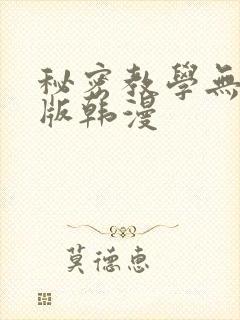 秘密教學無
版韩漫
莫德惠